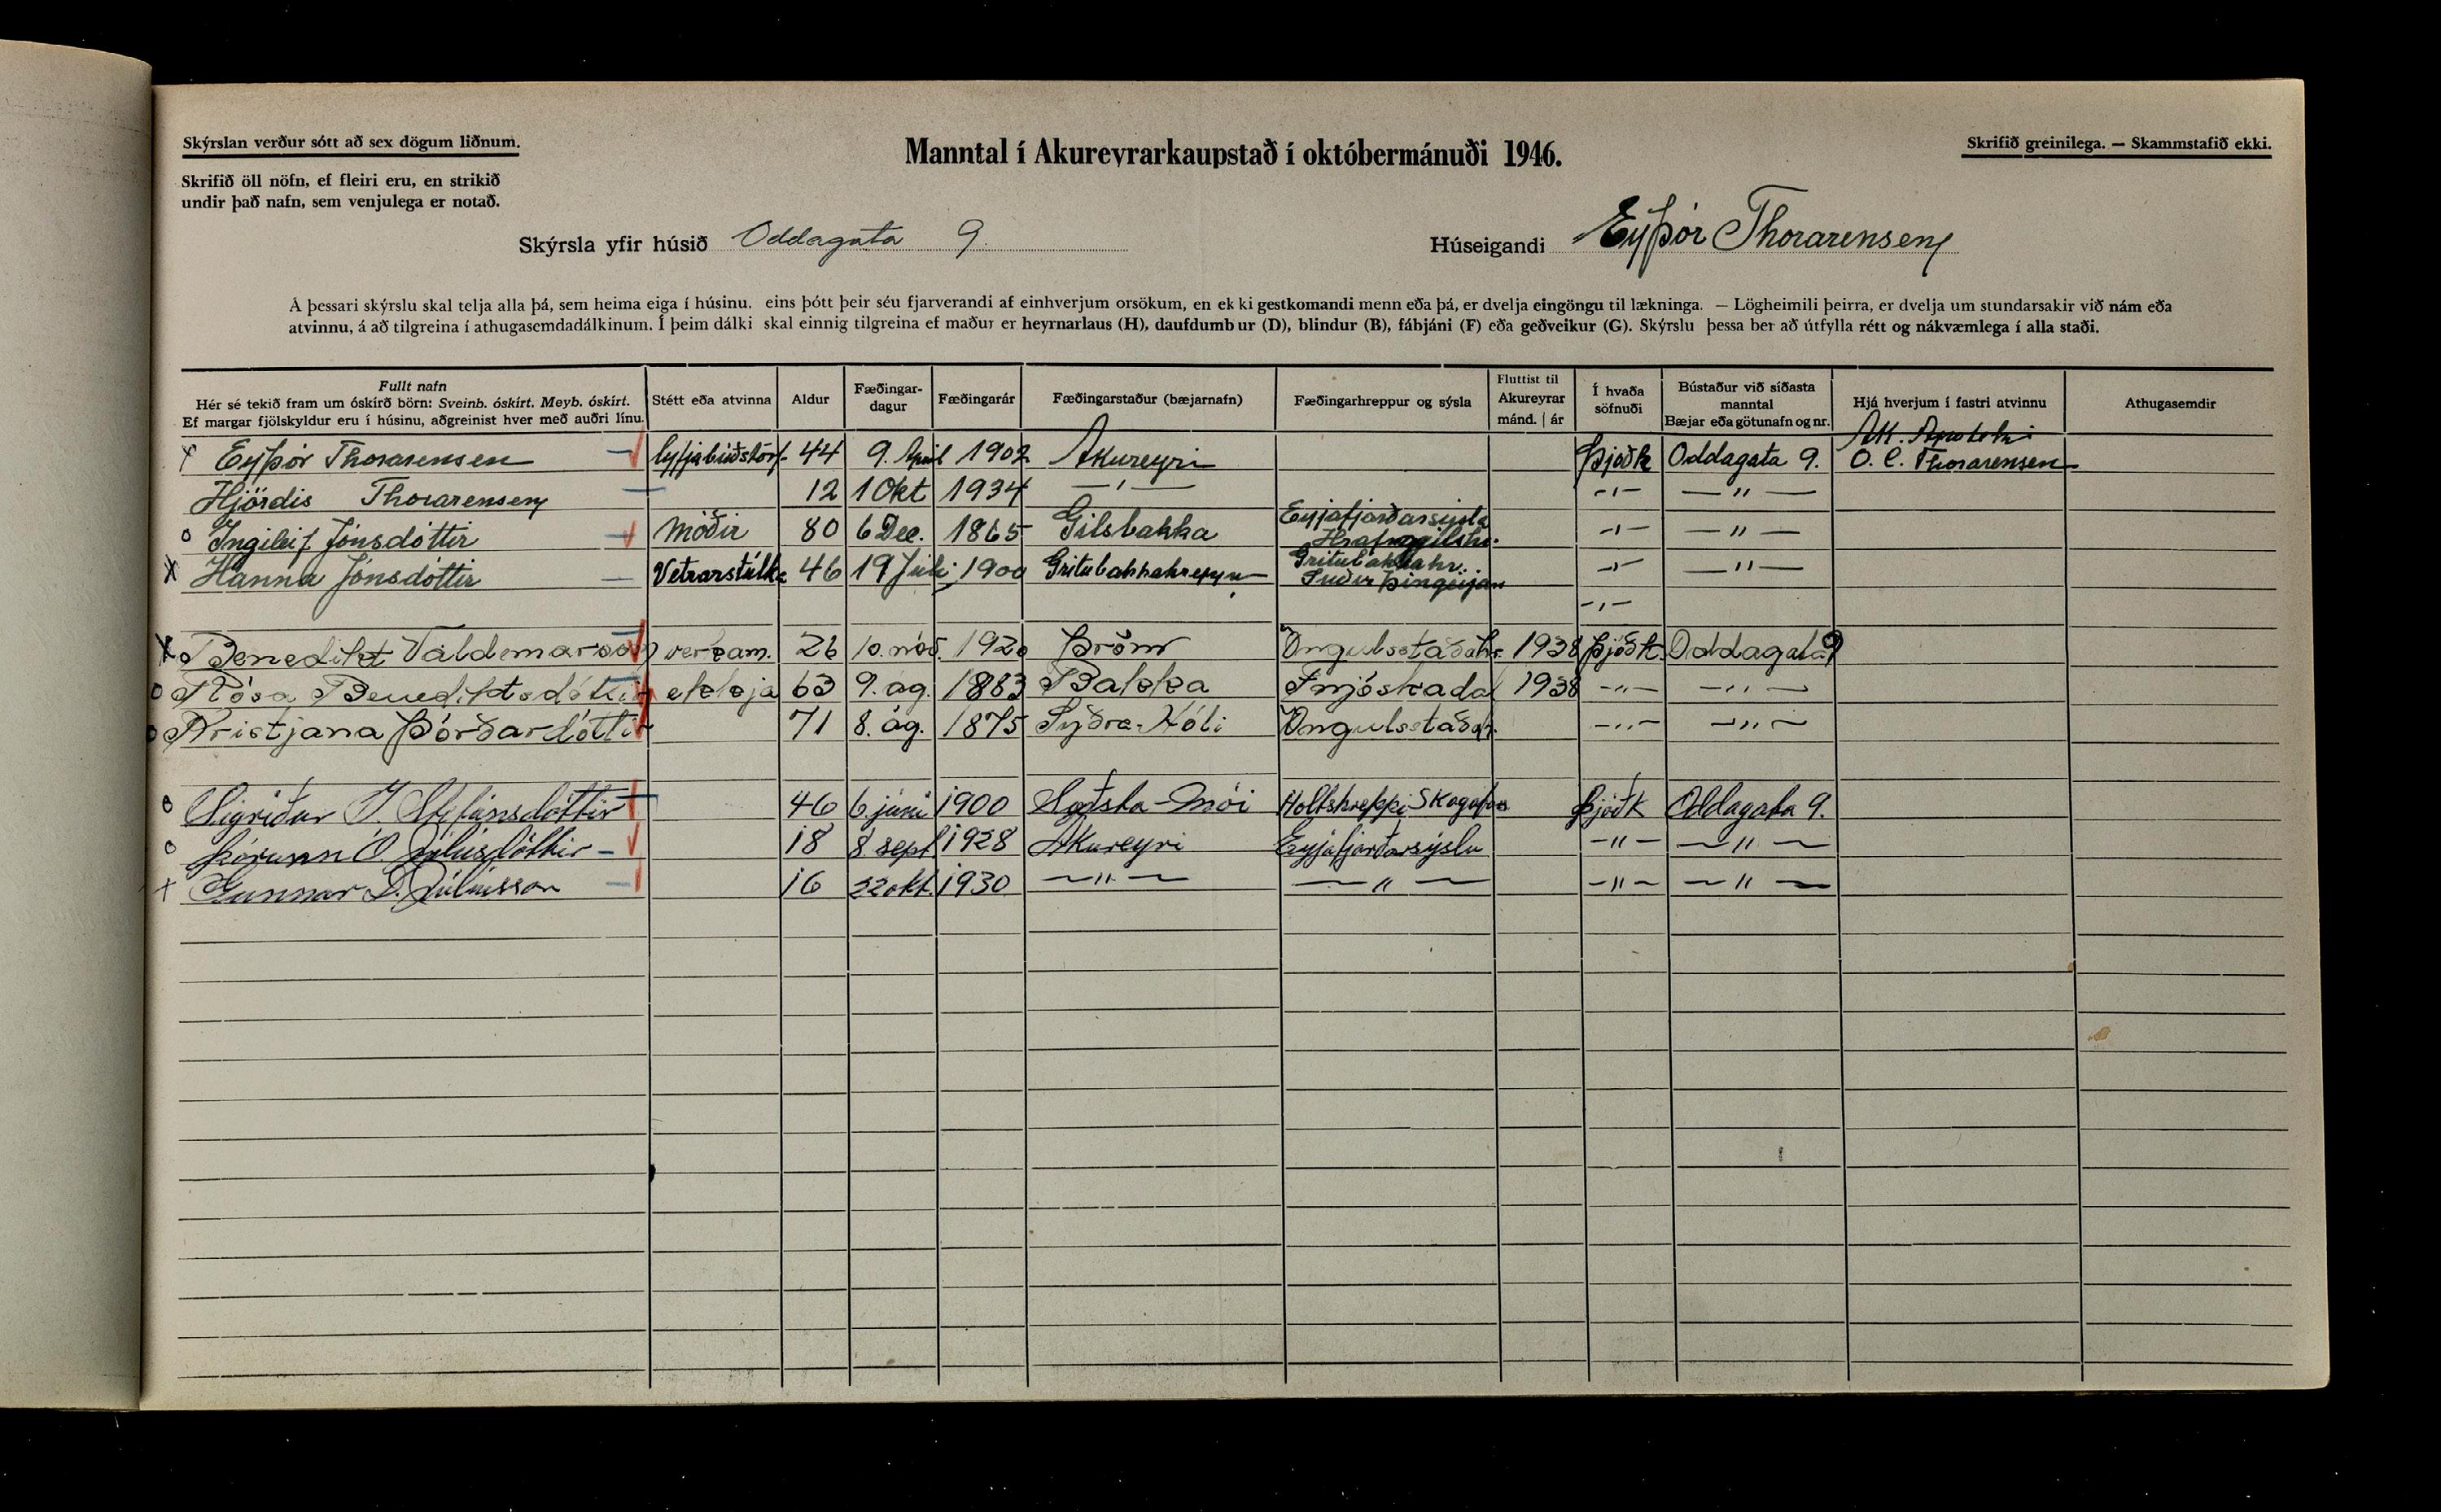 Skýrslan verður sótt að sex dögum liðnum.
Skrifið öll nöfn, ef fleiri eru, en strikið
undir það nafn, sem venjulega er notað.
Manntal í Akureyrarkaupstað í októbermánuði 1946.
Skrifið greinilega. — Skammstafið ekki.
Skýrsla yfir húsið Oddagata 9.
Húseigandi Eyþór Thorarensen
Á þessari skýrslu skal telja alla þá, sem heima eiga í húsinu, eins þótt þeir séu fjarverandi af einhverjum orsökum, en ekki gestkomandi menn eða þá, er dvelja eingöngu til lækninga. — Lögheimili þeirra, er dvelja um stundarsakir við nám eða
atvinnu, á að tilgreina í athugasemdadálkinum. Í þeim dálki skal einnig tilgreina ef maður er heyrnarlaus (H), daufdumbur (D), blindur (B), fábjáni (F) eða geðveikur (G). Skýrslu þessa ber að útfylla rétt og nákvæmlega í alla staði.
Fullt nafn
Hér sé tekið fram um óskírð börn: Sveinb. óskírt. Meyb. óskírt.
Ef margar fjölskyldur eru í húsinu, aðgreinist hver með auðri línu.
Stétt eða atvinna
Aldur
Fæðingar-
dagur
Fæðingarár
Fæðingarstaður (bæjarnafn)
Fæðingarhreppur og sýsla
Fluttist til
Akureyrar
mánd. | ár
Í hvaða
söfnuði
Bústaður við síðasta
manntal
Bæjar eða götunafn og nr.
Hjá hverjum í fastri atvinnu
Athugasemdir
Ak. Apoteki
x Eyþór Thorarensen 44 9. April 1902 Akureyri Þjóðk Oddagata 9. O. C. Thorarensen
Hjördis Thorarensen 12 1 Okt 1934 —〃— -〃- —〃—
o Ingileif Jónsdóttir Móðir 80 6 Dec. 1865 Gilsbakka Eyjafjarðarsýsla -〃- —〃—
Hrafnagilshr.
x Hanna Jónsdóttir Vetrarstúlka 46 19 Júli 1900 Gritubakkahreppur Gritubakkahr. -〃- —〃—
Suður Þingeyjar
-〃-
x o Benedikt Valdemarsson verkam. 26 10. nóv. 1920 Þröm Öngulsstaðahr. 1938 Þjóðk. Oddagata 9
o Rósa Benediktsdóttir ekkja 63 9. ág. 1883 Bakka Fnjóskadal 1938 -〃- —〃—
o Kristjana Þórðardóttir 71 8. ág. 1875 Syðra-Hóli Öngulsstaðahr. -〃- —〃—
o Sigríður J. Stefánsdóttir 46 6. júní 1900 Holtshreppi Skagafj. Þjóðk Oddagata 9.
o Þórunn Ó. Júlíusdóttir 18 8. sept 1928 Akureyri Eyjafjarðarsýslu -〃- —〃—
+ Gunnar D. Júlíusson 16 22 okt. 1930 —〃— —〃— -〃- —〃—